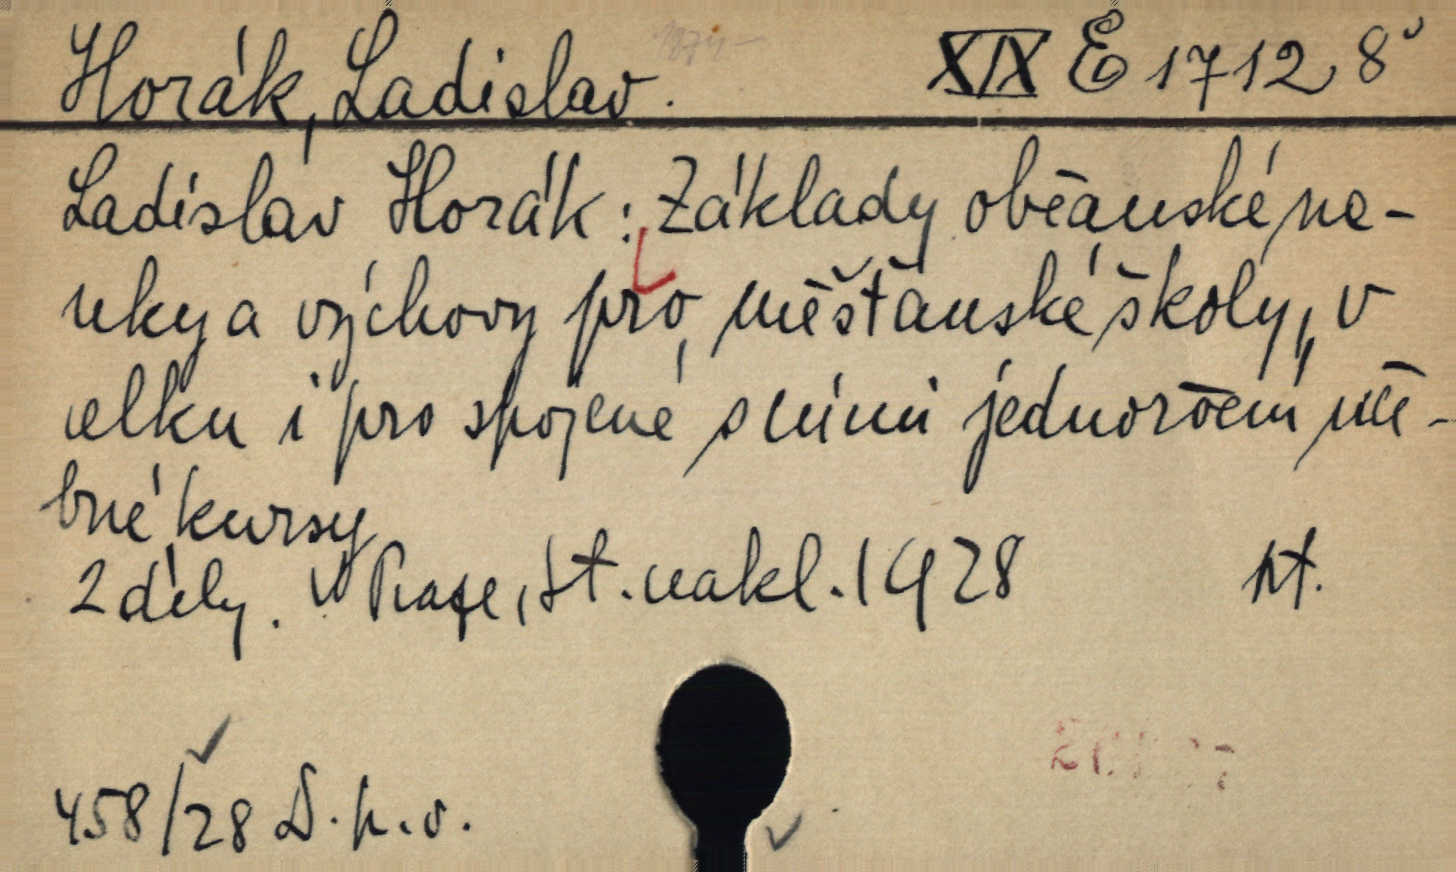 Horák, Ladislav. XIX E 1712 8°
Ladislav Horák: Základy občanské na-
uky a výchovy pro měšťanské školy, v
celku i pro spojené s nimi jednoroční uče-
bné kursy
2 díly. V Praze, St. nakl. 1928 st.
458/28 D.p.v.